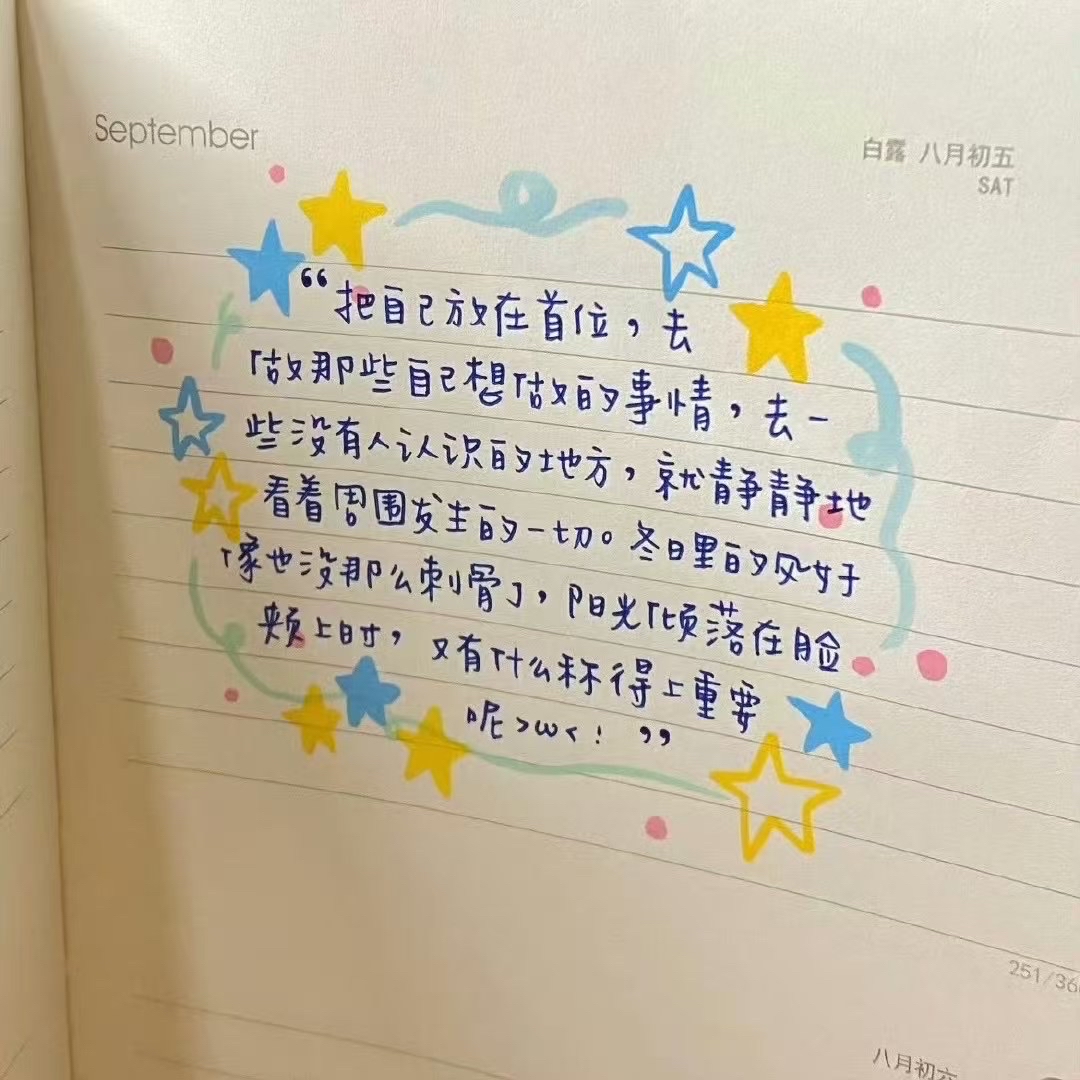 September
白露 八月初五
SAT
“把自己放在首位，去
做那些自己想做的事情，去一
些没有人认识的地方，就静静地
看着周围发生的一切。冬日里的风好
像也没那么刺骨了，阳光倾落在脸
颊上时，又有什么称得上重要
呢>ω<！”
251/36
八月初六